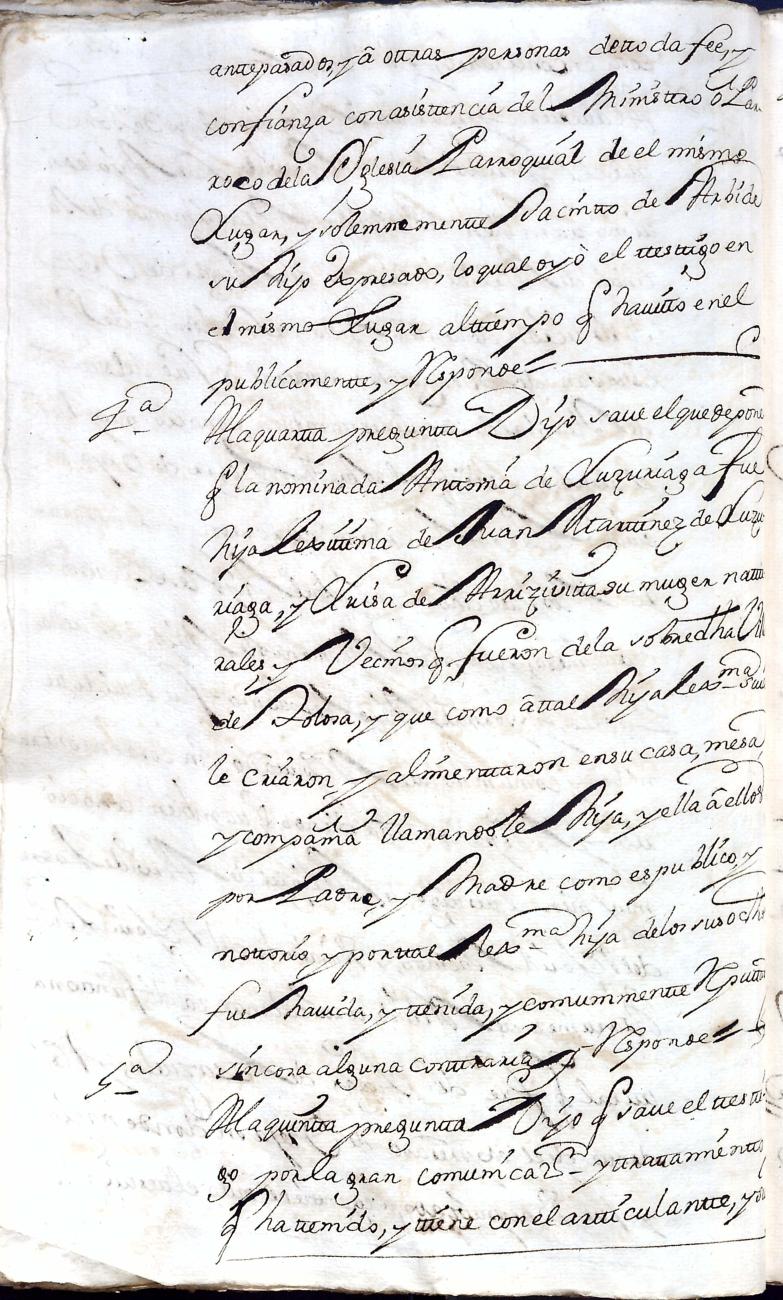 antepasados, y â ottras personas detto da fee, y
confianza con asisttencia del Ministtro ô Par
roco dela Yglesia Parroquial de el mismo
Lugar, y solemnementte Jacintto de Arbide
su hijo expresado, lo qual oyò el ttesttigo en
el mismo Lugar alttiempo q havitò en el
publicamentte, y Responde=
4ª
A la quartta pregunta Dijo save el que depone
q la nominada Anttonia de Luzuriaga fue
hija lexittima de Juan Marttinez de Luzu
riaga, y Luisa de Arrizivitta su muger nattu
rales, y Vecinos q fueron dela sobredha Villa
de Tolosa, y que como â ttal hija lexma suia
le criaron y alimenttaron en su casa, mesa,
y compañia llamandole hija, y ella â ellos
por Padre, y Madre como es publico, y
nottorio, y por ttal lexma hija delos susodhos
fue havida, y ttenida, y comunmentte Reputtada
sin cosa alguna conttraria y Responde=
5ª
A la quintta pregunta Dijo q save el ttestti
go por la gran comunicazn y ttrattamientto
q ha ttenido, y ttiene con el artticulantte, y